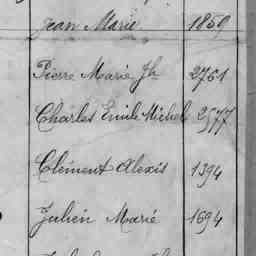 Jean Marie 1859
Pierre Marie Jh 2761
Charles Emile Michel 2577
Clément Alexis 1394
Julien Marie 1694